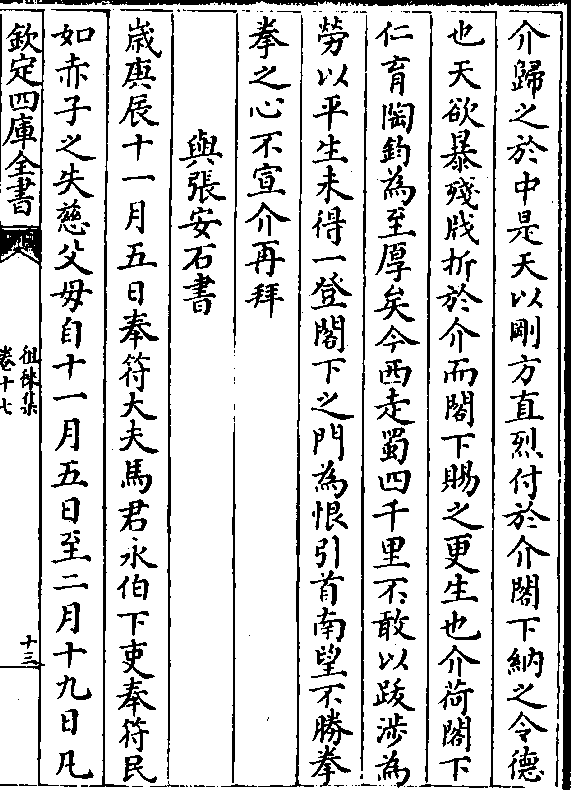 介歸之於中是天以剛方直烈付於介閣下納之令德
也天欲暴殘戕折於介而閣下賜之更生也介荷閣下
仁育陶鈞為至厚矣今西走蜀四千里不敢以跋涉為
勞以平生未得一登閣下之門為恨引首南望不勝拳
拳之心不宣介再拜
與張安石書
歲庚辰十一月五日奉符大夫馬君永伯下吏奉符民
如赤子之失慈父母自十一月五日至二月十九日凡
欽定四庫全書
徂徠集
卷十七
十三